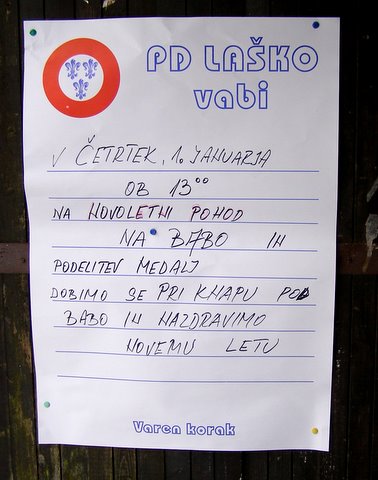 PD LAŠKO
vabi
V ČETRTEK, 1. JANUARJA
OB 13⁰⁰
NA NOVOLETNI POHOD
NA BABO IN
PODELITEV MEDALJ
DOBIMO SE PRI KNAPU POD
BABO IN NAZDRAVIMO
NOVEMU LETU
Varen korak